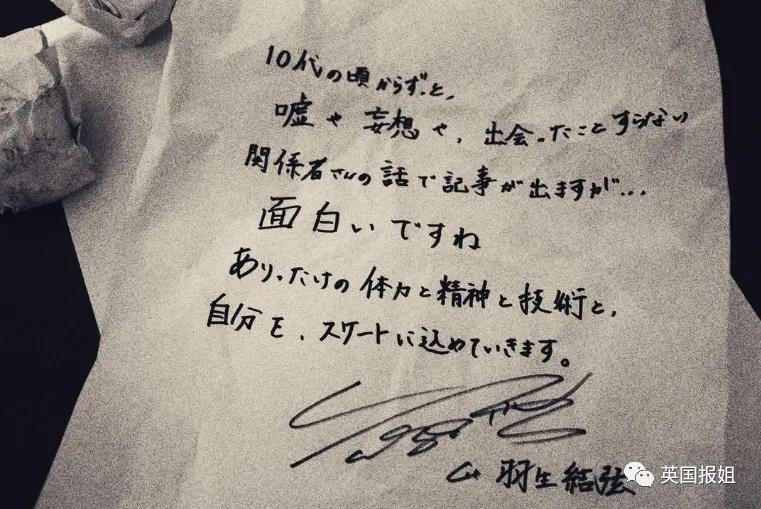 10代の頃からずっと、
嘘や妄想や、出会ったことすらない
関係者さんの話で記事が出ますが...
面白いですね
ありったけの体力と精神と技術と、
自分を、スケートに込めていきます。
羽生結弦
英国报姐